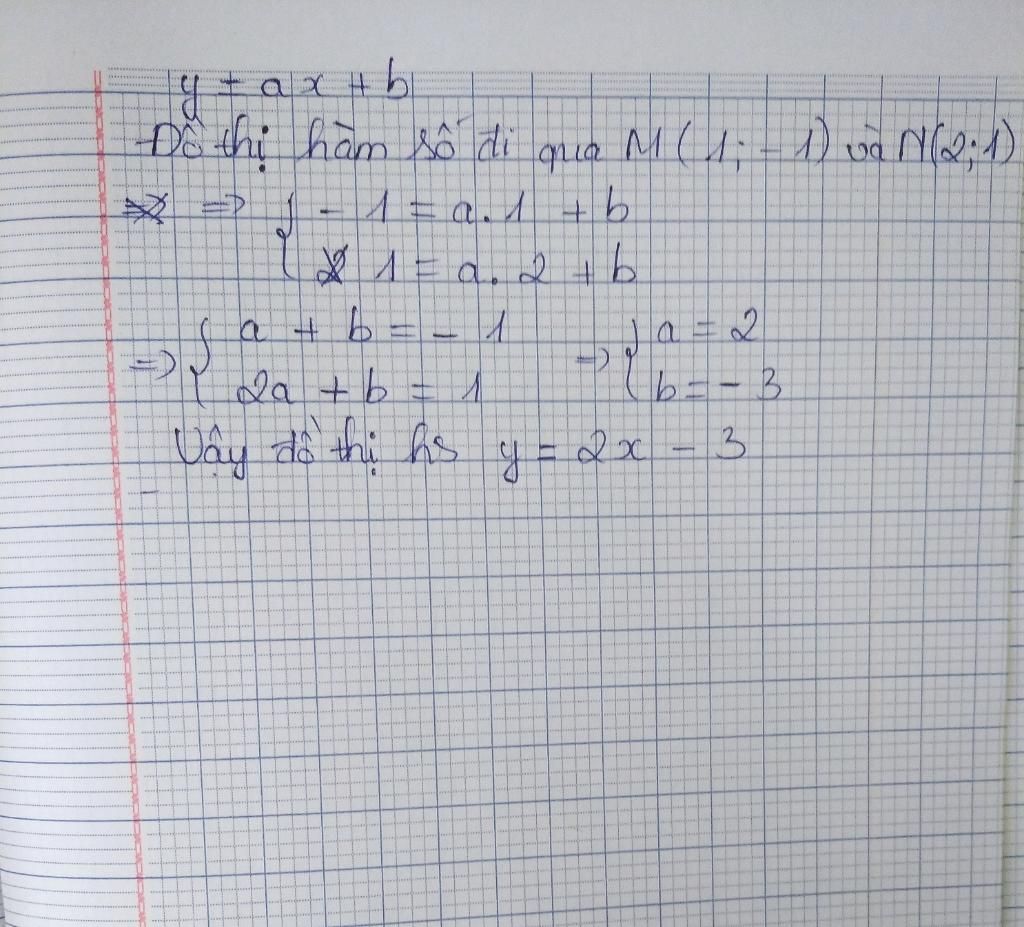 y = ax + b
Đồ thị hàm số đi qua M(1; -1) và N(2; 1)
=> { -1 = a.1 + b
1 = a.2 + b
=> { a + b = -1 => { a = 2
2a + b = 1 b = -3
Vậy đồ thị hs y = 2x - 3